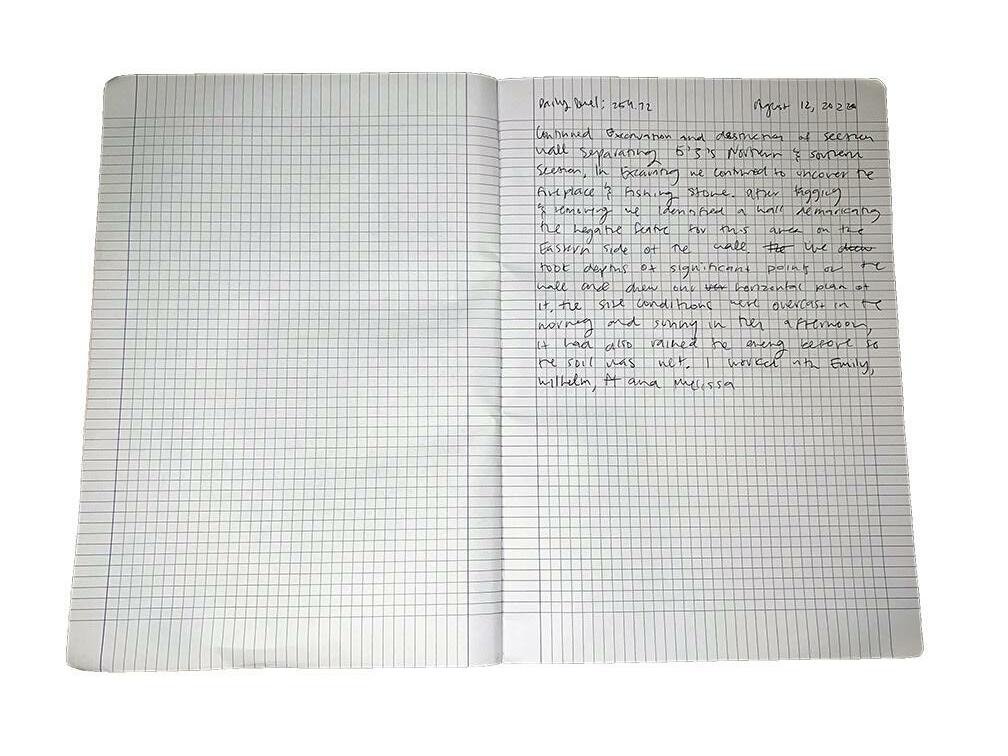 Daily level: 254.72 August 12, 2022
Continued Excavation and destruction of section
wall separating 5'3's Northern & southern
section, In Excavating we continued to uncover the
fireplace & fishing stone. after tagging
& removing we identified a wall demarkating
the negative feature for this area on the
Eastern side of the wall. The We drew
took depths of significant points of the
wall and drew our horizontal plan of
it. the site conditions were overcast in the
morning and sunny in the afternoon,
it had also rained the evening before so
the soil was wet. I worked with Emily,
Wilhelm, A and Melissa